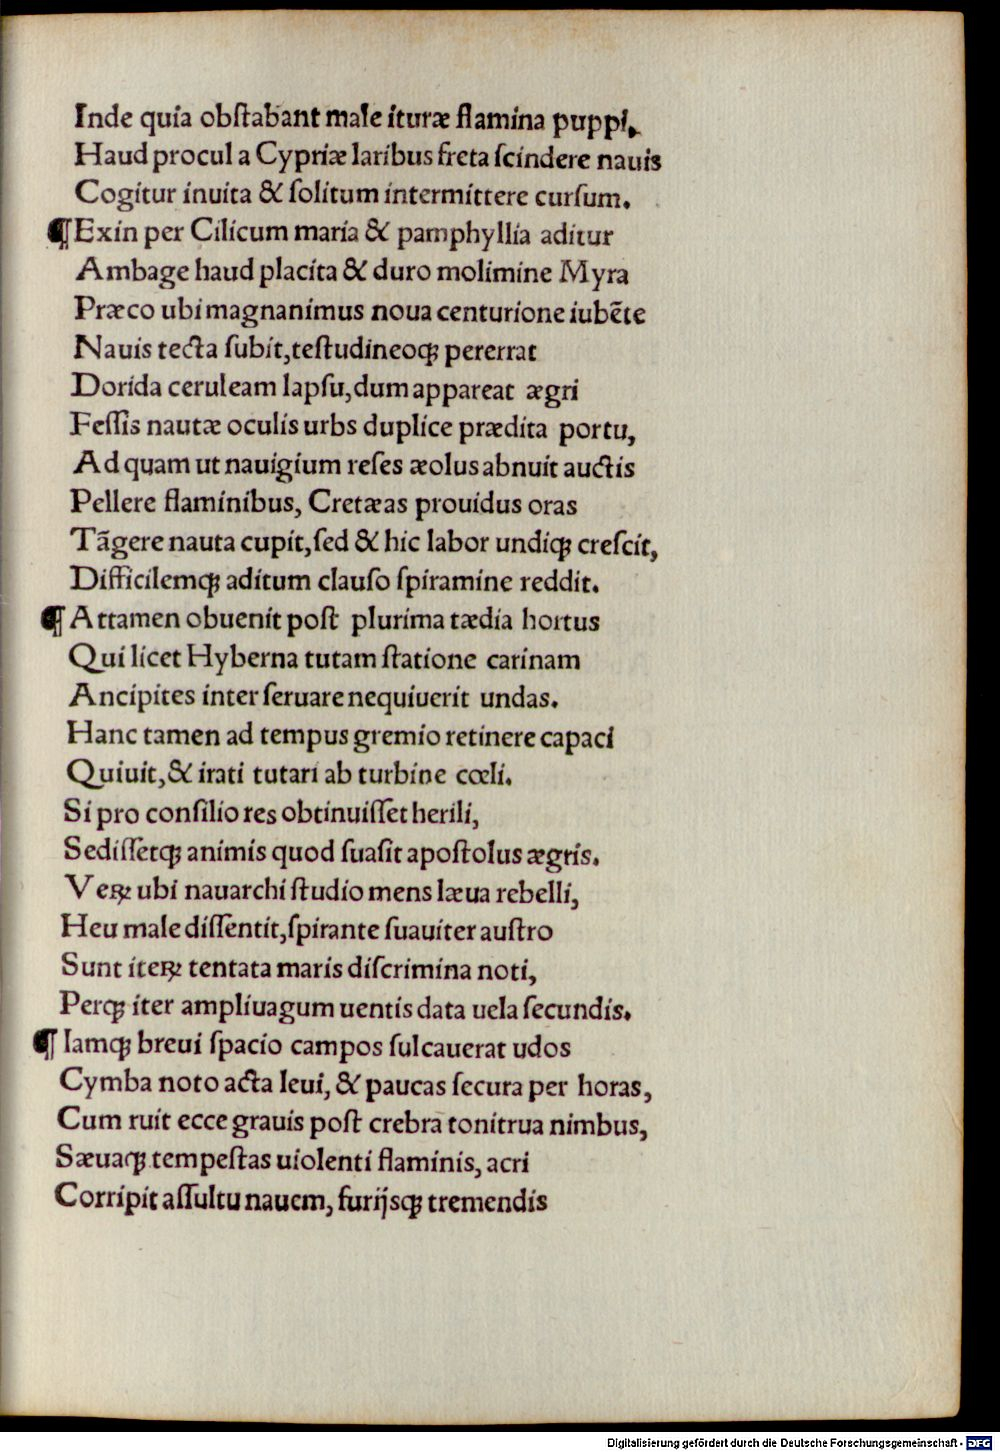 Inde quia obſtabant male ituræ flamina puppi,
Haud procul a Cypriæ laribus freta ſcindere nauis
Cogitur inuita & ſolitum intermittere curſum.
¶ Exin per Cilicum maria & pamphyllia aditur
Ambage haud placita & duro molimine Myra
Præco ubi magnanimus noua centurione iubẽte
Nauis tecta ſubit, teſtudineoqꝫ pererrat
Dorida ceruleam lapſu, dum appareat ægri
Feſſis nautæ oculis urbs duplice prædita portu,
Ad quam ut nauigium reſes æolus abnuit auctis
Pellere flaminibus, Cretæas prouidus oras
Tãgere nauta cupit, ſed & hic labor undiqꝫ creſcit,
Difficilemqꝫ aditum clauſo ſpiramine reddit.
¶ Attamen obuenit poſt plurima tædia hortus
Qui licet Hyberna tutam ſtatione carinam
Ancipites inter ſeruare nequiuerit undas.
Hanc tamen ad tempus gremio retinere capaci
Quiuit, & irati tutari ab turbine cœli.
Si pro conſilio res obtinuiſſet herili,
Sediſſetqꝫ animis quod ſuaſit apoſtolus ægris.
Veꝝ ubi nauarchi ſtudio mens læua rebelli,
Heu male diſſentit, ſpirante ſuauiter auſtro
Sunt iteꝝ tentata maris diſcrimina noti,
Perqꝫ iter ampliuagum uentis data uela ſecundis.
¶ Iamqꝫ breui ſpacio campos ſulcauerat udos
Cymba noto acta leui, & paucas ſecura per horas,
Cum ruit ecce grauis poſt crebra tonitrua nimbus,
Sæuaqꝫ tempeſtas uiolenti flaminis, acri
Corripit aſſultu nauem, furijsqꝫ tremendis
Digitalisierung gefördert durch die Deutsche Forschungsgemeinschaft - DFG